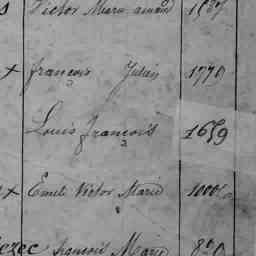 Victor Marie amand
x françois Julien 1779
Louis françois 1679
x Emile Victor Marie 1000
françois Marie